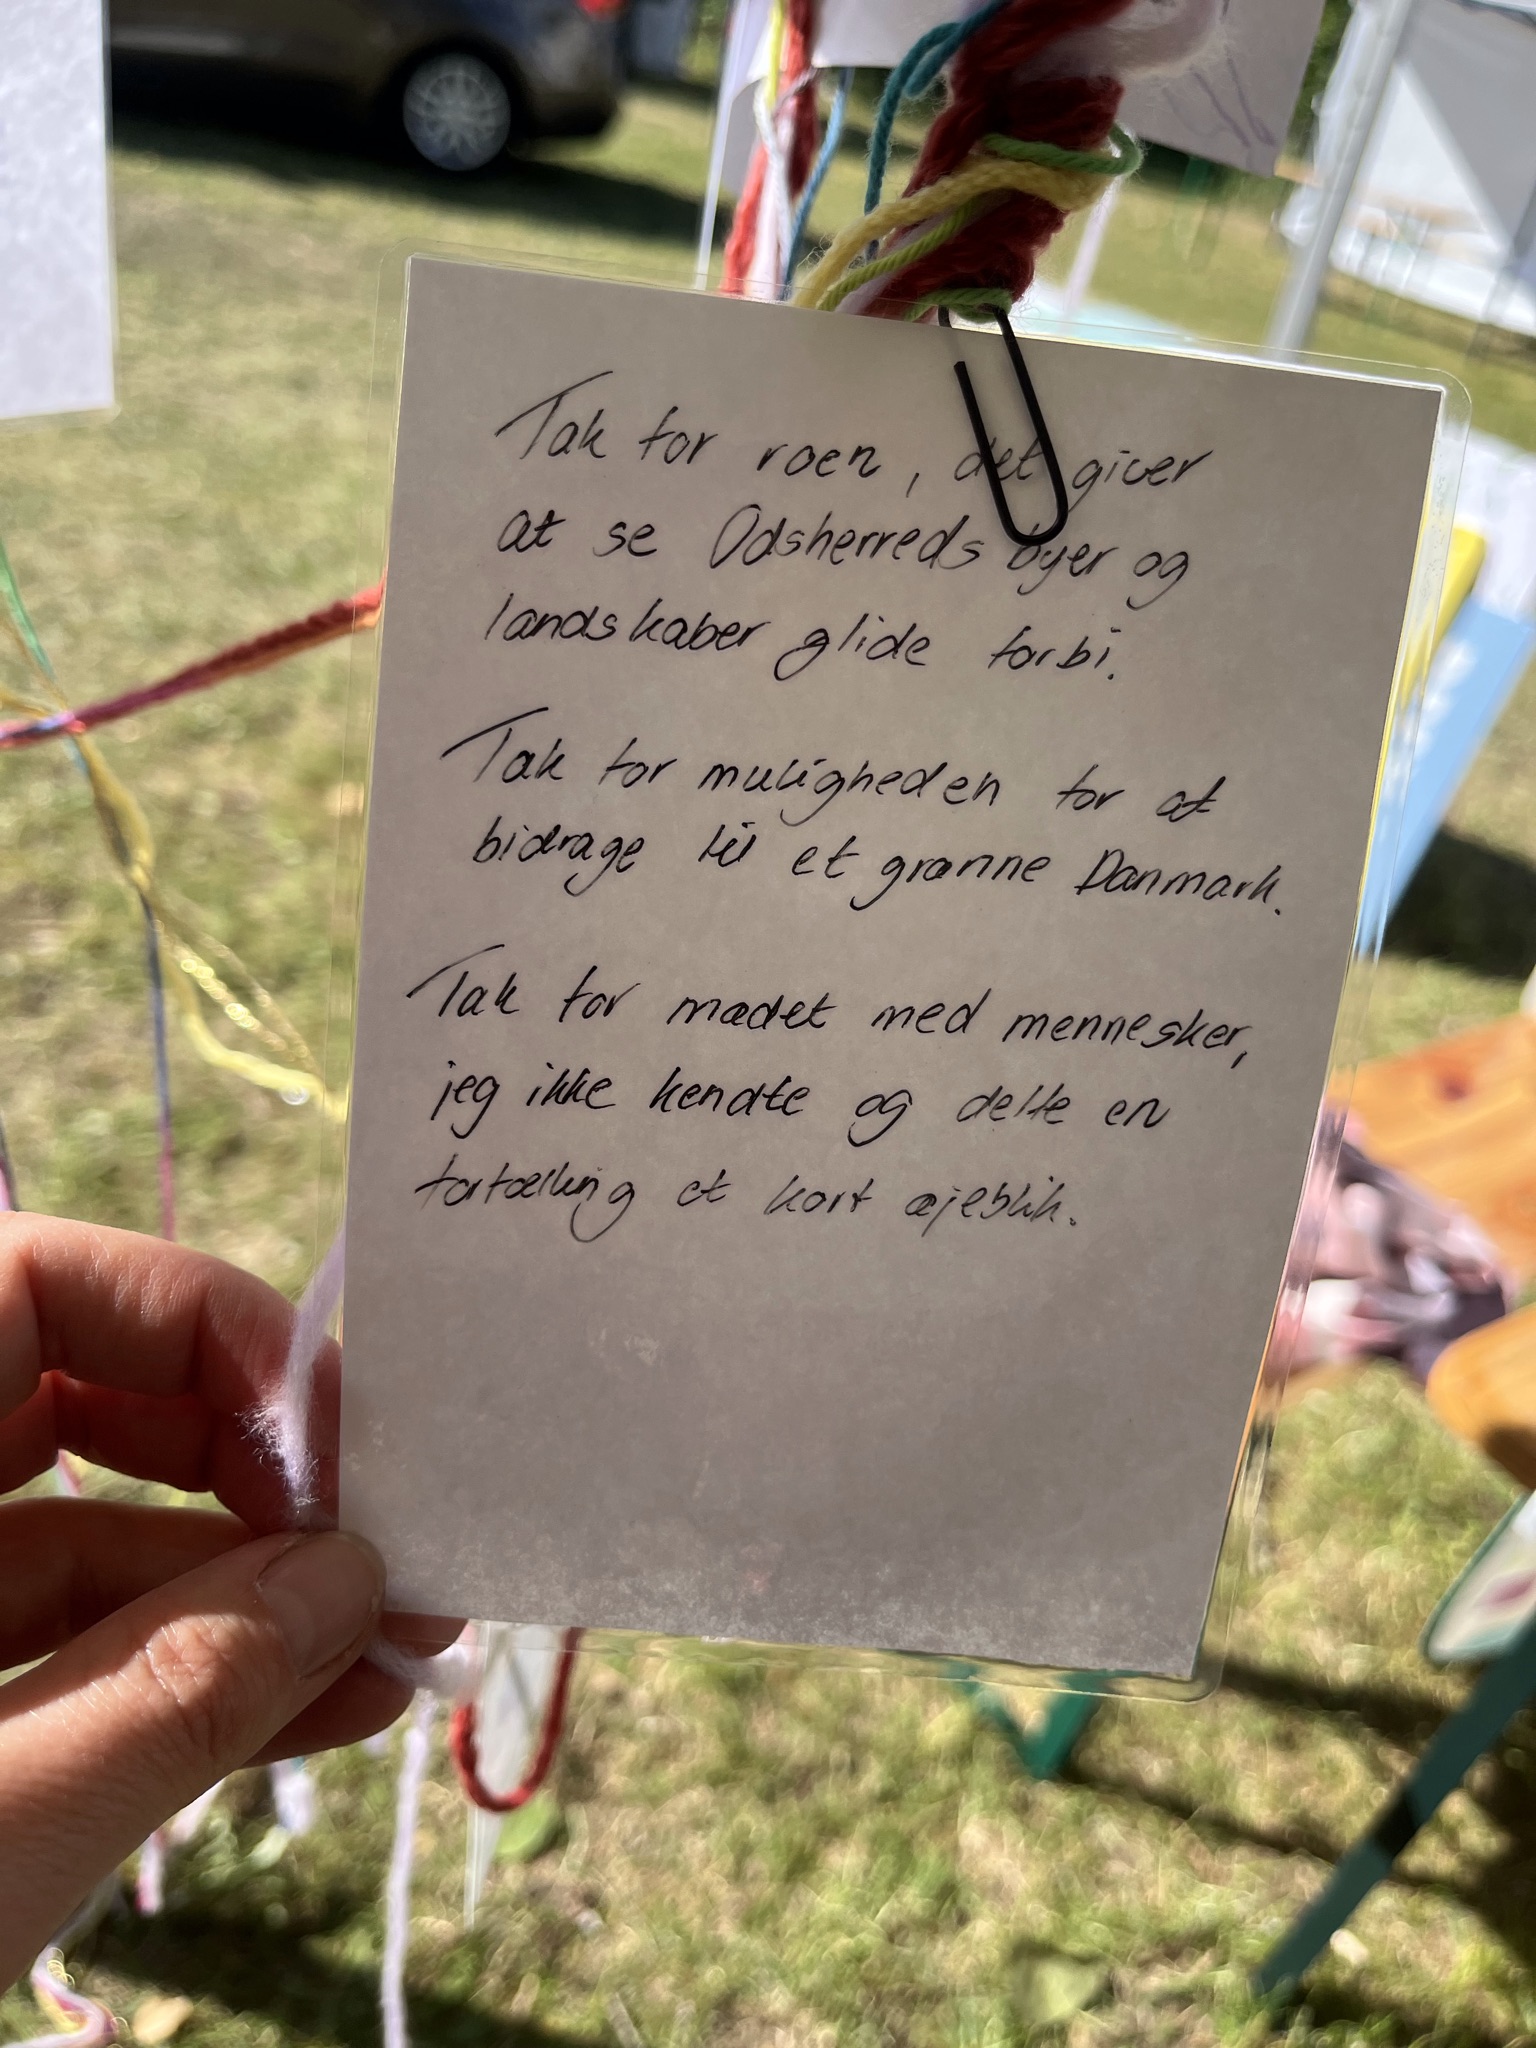 Tak for roen, det giver
at se Odsherreds byer og
landskaber glide forbi.
Tak for muligheden for at
bidrage til et grønne Danmark.
Tak for mødet med mennesker,
jeg ikke kendte og delte en
fortælling et kort øjeblik.